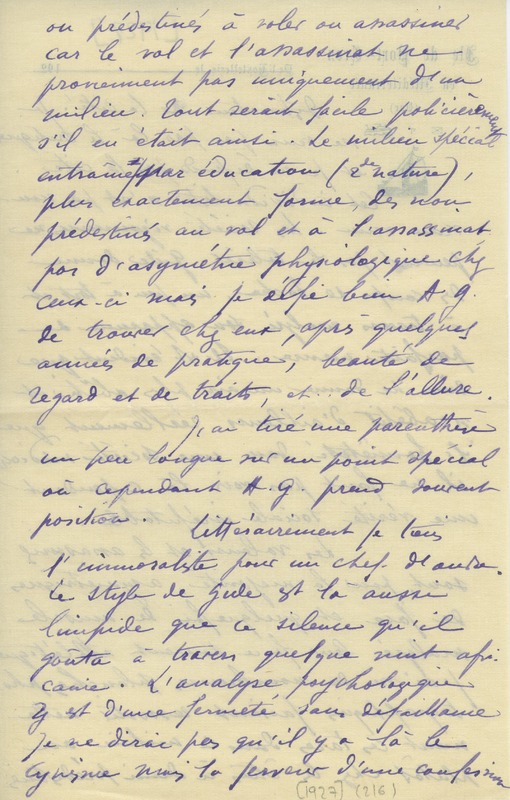 ou prédestinés à voler ou assassiner
car le vol et l'assassinat ne
proviennent pas uniquement d'un
milieu. Tout serait facile policièrement
s'il en était ainsi. Le milieu spécial
entraîne par éducation (2de nature),
plus exactement forme, des non
prédestinés au vol et à l'assassinat
pas d'asymétrie physiologique chez
ceux-ci mais je défie bien A. G.
de trouver chez eux, après quelques
années de pratique, beauté de
regard et de traits, et .. de l'allure.
J'ai tiré une parenthèse
un peu longue sur un point spécial
où cependant A. G. prend souvent
position. Littérairement je tiens
l'immoraliste pour un chef-d'œuvre.
Le style de Gide est là aussi
limpide que ce silence qu'il
goûta à travers quelque nuit afri
caine. L'analyse psychologique
y est d'une fermeté sans défaillance
Je ne dirai pas qu'il y a là le
cynisme mais la ferveur d'une confession
[1927] (2/6)